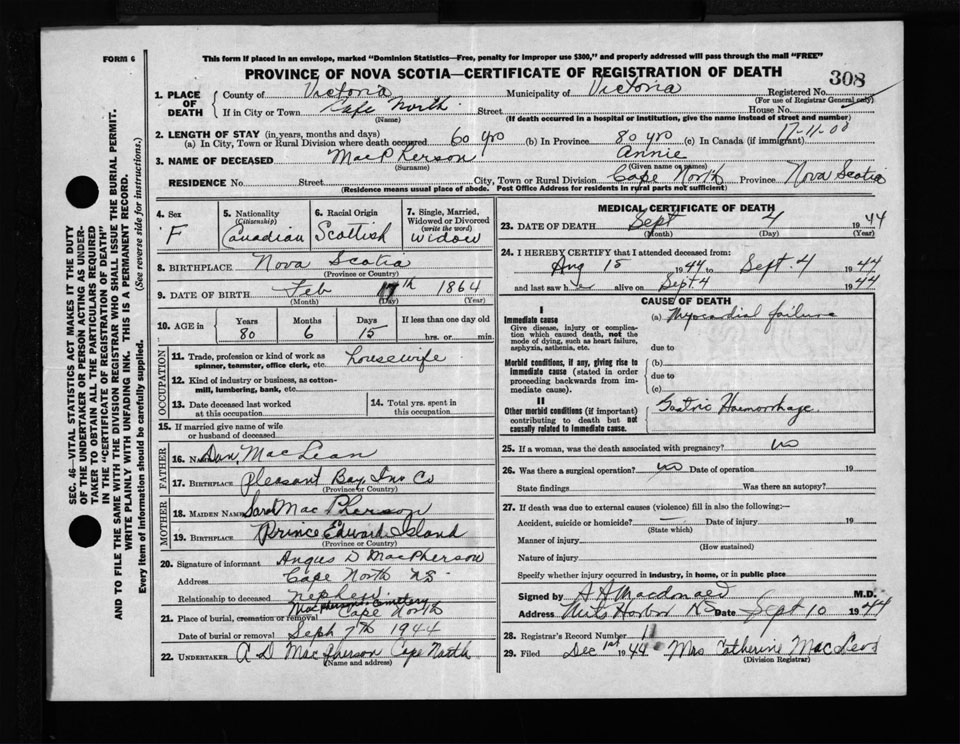 FORM 6
This form if placed in an envelope, marked "Dominion Statistics—Free, penalty for improper use $300," and properly addressed will pass through the mail "FREE"
PROVINCE OF NOVA SCOTIA—CERTIFICATE OF REGISTRATION OF DEATH
308
1. PLACE OF DEATH County of Victoria Municipality of Victoria Registered No.
(For use of Registrar General only)
If in City or Town Cape North Street House No.
(Name) (If death occurred in a hospital or institution, give the name instead of street and number)
2. LENGTH OF STAY (in years, months and days)
(a) In City, Town or Rural Division where death occurred 60 yrs (b) In Province 80 yrs (c) In Canada (if immigrant) 17-11-00
3. NAME OF DECEASED MacPherson Annie
(Surname) (Given name or names)
RESIDENCE No. Street City, Town or Rural Division Cape North Province Nova Scotia
(Residence means usual place of abode. Post Office Address for residents in rural parts not sufficient)
SEC. 46—VITAL STATISTICS ACT MAKES IT THE DUTY
OF THE UNDERTAKER OR PERSON ACTING AS UNDER-
TAKER TO OBTAIN ALL THE PARTICULARS REQUIRED
IN THE "CERTIFICATE OF REGISTRATION OF DEATH"
AND TO FILE THE SAME WITH THE DIVISION REGISTRAR WHO SHALL ISSUE THE BURIAL PERMIT.
WRITE PLAINLY WITH UNFADING INK. THIS IS A PERMANENT RECORD.
Every item of information should be carefully supplied. (See reverse side for instructions.)
4. Sex
F
5. Nationality
(Citizenship)
Canadian
6. Racial Origin
Scottish
7. Single, Married,
Widowed or Divorced
(write the word)
widow
8. BIRTHPLACE Nova Scotia
(Province or Country)
9. DATE OF BIRTH Feb 17th 1864
(Month) (Day) (Year)
10. AGE in Years Months Days If less than one day old
80 6 15 hrs. or min.
OCCUPATION
11. Trade, profession or kind of work as
spinner, teamster, office clerk, etc. housewife
12. Kind of industry or business, as cotton-
mill, lumbering, bank, etc.
13. Date deceased last worked
at this occupation
14. Total yrs. spent in
this occupation
15. If married give name of wife
or husband of deceased
FATHER
16. Name Dan. MacLean
17. BIRTHPLACE Pleasant Bay Inv Co
(Province or Country)
MOTHER
18. MAIDEN NAME Sara MacPherson
19. BIRTHPLACE Prince Edward Island
(Province or Country)
20. Signature of informant Angus D MacPherson
Address Cape North NS
Relationship to deceased nephew
MacPherson Cemetery
21. Place of burial, cremation or removal Cape North
Date of burial or removal Sept 7th 1944
22. UNDERTAKER A D MacPherson Cape North
(Name and address)
MEDICAL CERTIFICATE OF DEATH
23. DATE OF DEATH Sept 4 1944
(Month) (Day) (Year)
24. I HEREBY CERTIFY that I attended deceased from:
Aug 15 1944 to Sept. 4 1944
and last saw her alive on Sept 4 1944
CAUSE OF DEATH
I
Immediate cause
Give disease, injury or complica-
tion which caused death, not the
mode of dying, such as heart failure,
asphyxia, asthenia, etc.
(a) Myocardial failure
due to
Morbid conditions, if any, giving rise to
immediate cause (stated in order
proceeding backwards from im-
mediate cause).
(b)
due to
(c)
II
Other morbid conditions (if important)
contributing to death but not
causally related to immediate cause.
Gastric Haemorrhage
25. If a woman, was the death associated with pregnancy? no
26. Was there a surgical operation? no Date of operation 19
State findings Was there an autopsy?
27. If death was due to external causes (violence) fill in also the following:—
Accident, suicide or homicide? — Date of injury 19
(State which)
Manner of injury
(How sustained)
Nature of injury
Specify whether injury occurred in industry, in home, or in public place
Signed by A A Macdonald M.D.
Address Neil's Harbor NS Date Sept 10 1944
28. Registrar's Record Number 11
29. Filed Dec 1st 1944 Mrs Catherine MacLeod
(Division Registrar)